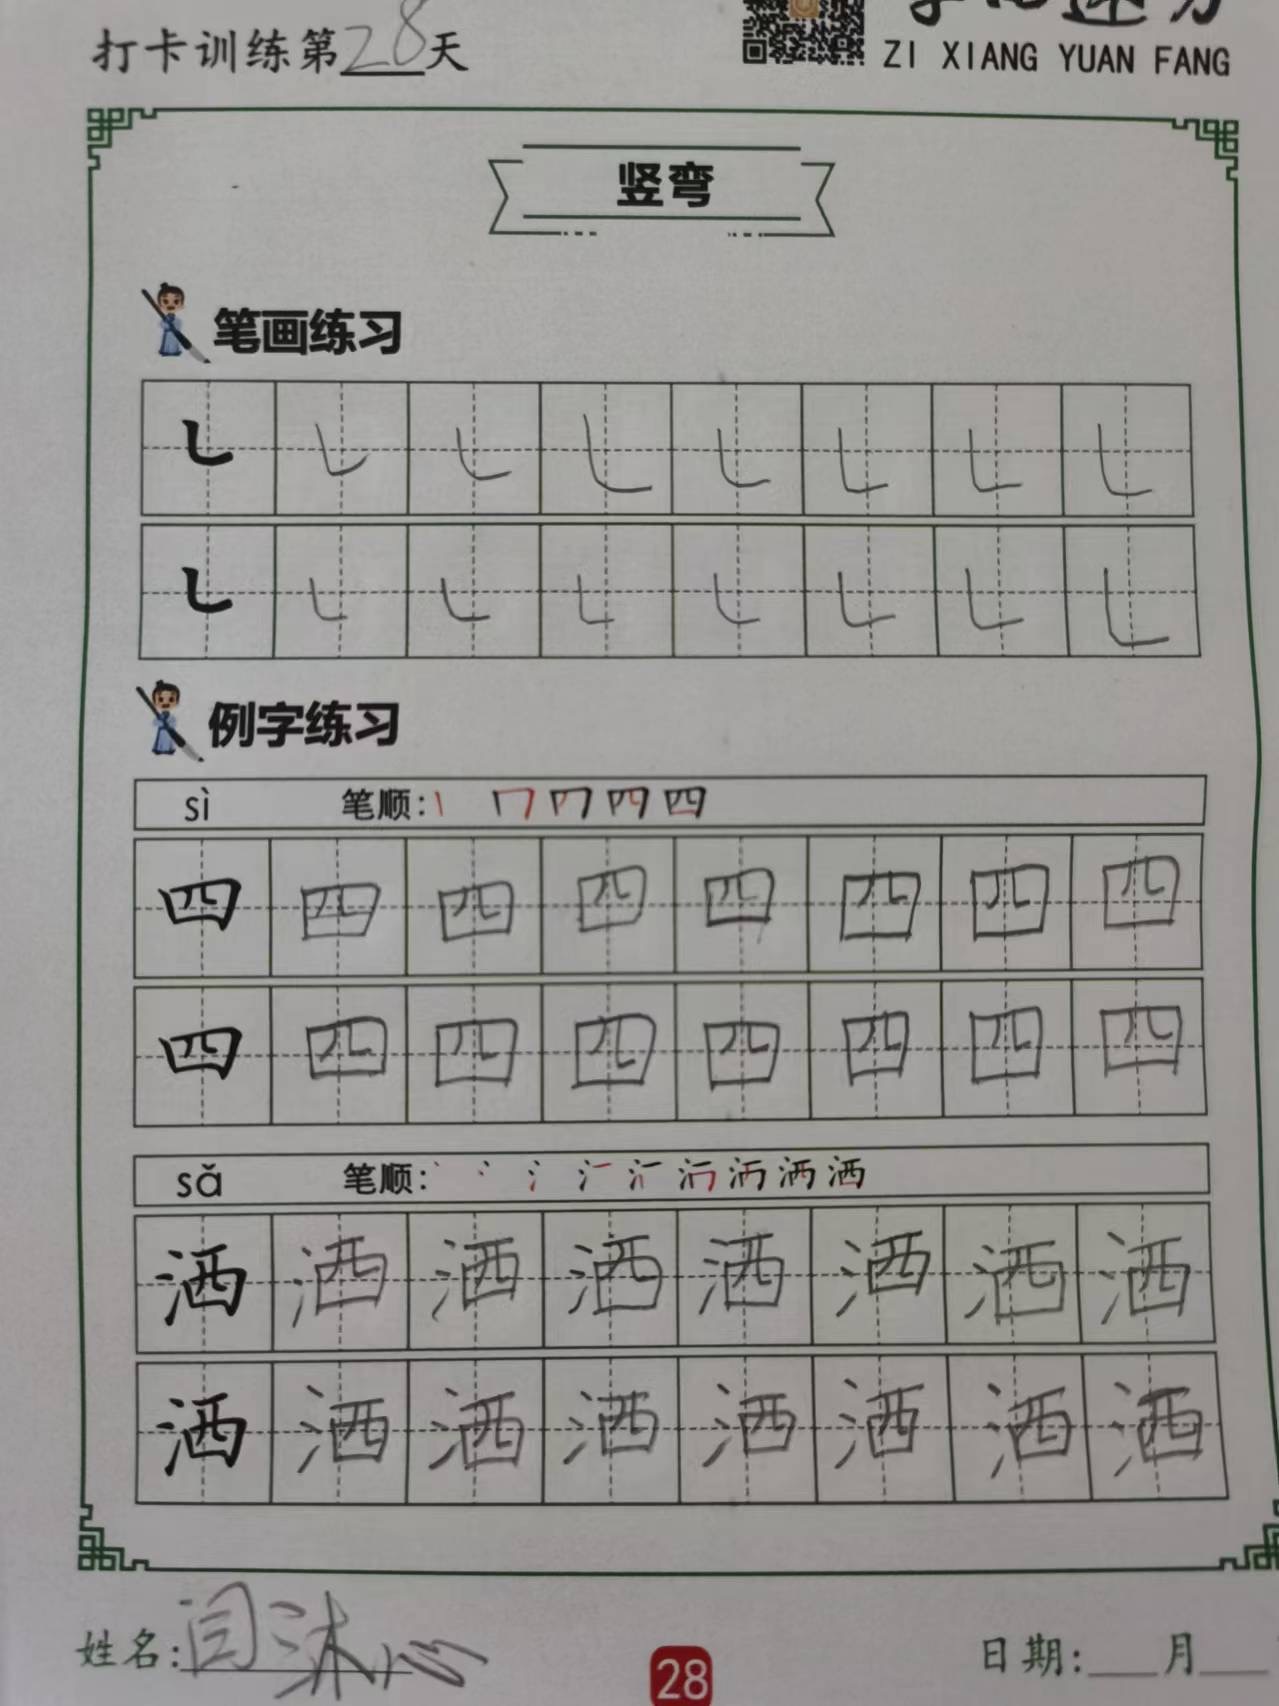 打卡训练第28天
ZI XIANG YUAN FANG
竖弯
笔画练习
例字练习
sì 笔顺:
四 四 四 四 四 四 四 四
四 四 四 四 四 四 四 四
sǎ 笔顺:
洒 洒 洒 洒 洒 洒 洒 洒
洒 洒 洒 洒 洒 洒 洒 洒
姓名:闫沐心
28
日期: 月